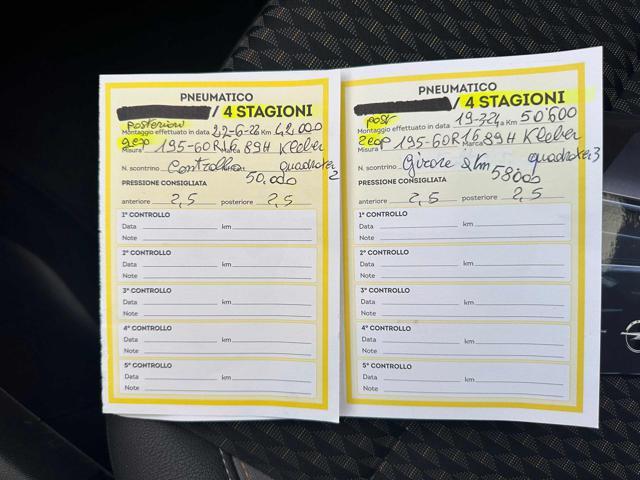 PNEUMATICO
/ 4 STAGIONI
posteriori
Montaggio effettuato in data 22-6-22 Km 42.000
Misura 195-60R16 89H Marca Kleber
N. scontrino Controllo quadrato 2
50.000
PRESSIONE CONSIGLIATA
anteriore 2,5 posteriore 2,5
1° CONTROLLO
Data km
Note
2° CONTROLLO
Data km
Note
3° CONTROLLO
Data km
Note
4° CONTROLLO
Data km
Note
5° CONTROLLO
Data km
Note
PNEUMATICO
/ 4 STAGIONI
post
Montaggio effettuato in data 19-7-24 Km 50.600
Misura 195-60R16 89H Marca Kleber
N. scontrino Girare a Km quadrato 3
58000
PRESSIONE CONSIGLIATA
anteriore 2,5 posteriore 2,5
1° CONTROLLO
Data km
Note
2° CONTROLLO
Data km
Note
3° CONTROLLO
Data km
Note
4° CONTROLLO
Data km
Note
5° CONTROLLO
Data km
Note